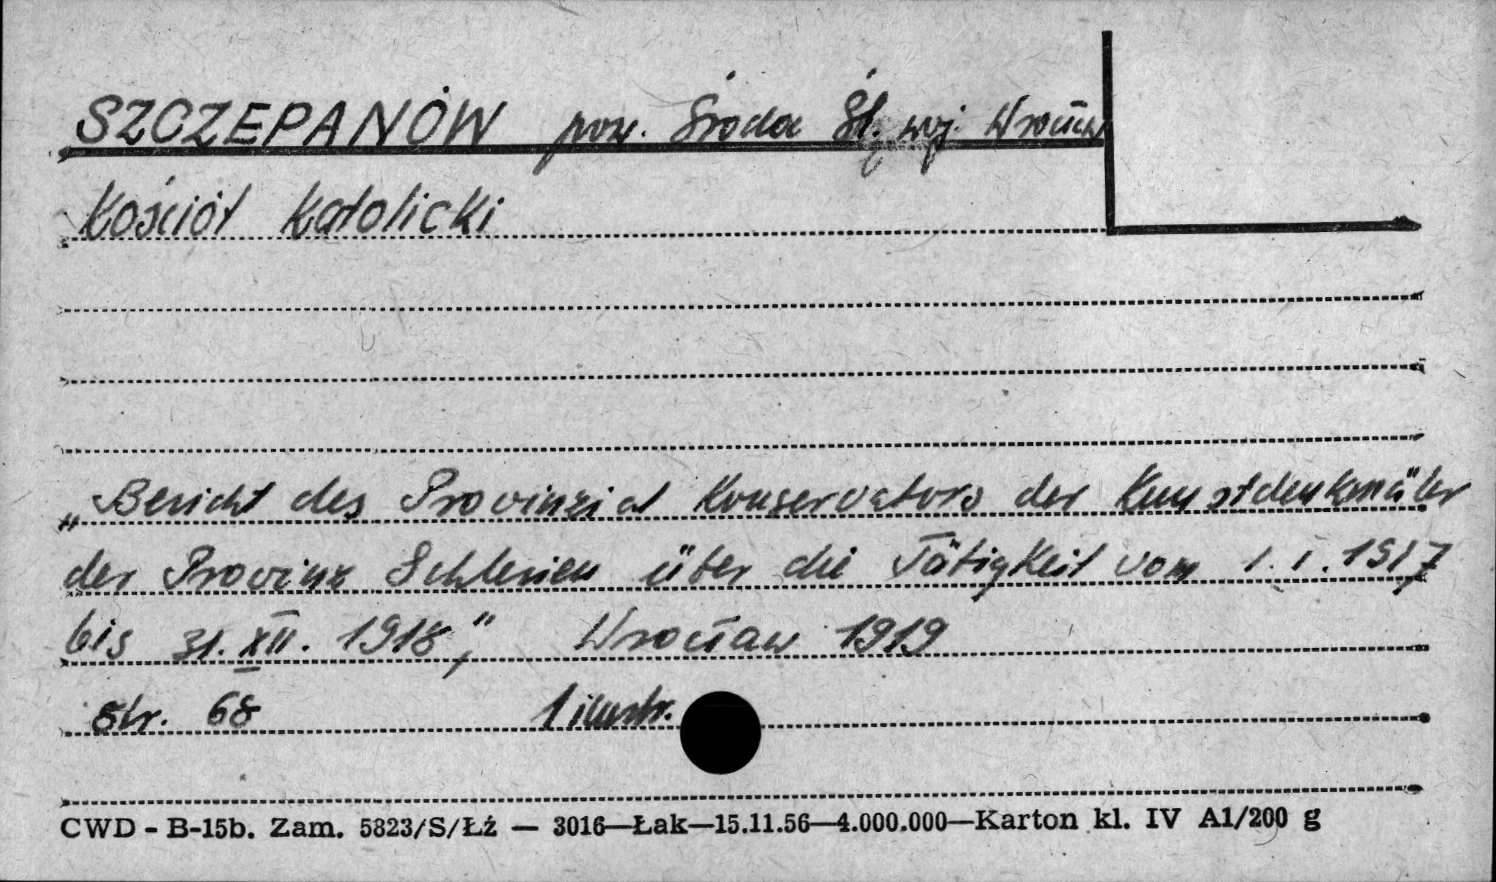 SZCZEPANÓW pow. Środa Śl. woj. Wrocław
Kościół Katolicki
„Bericht des Provinzial Konservators der Kunstdenkmäler
der Provinz Schlesien über die Tätigkeit vom 1.I.1917
bis 31.XII.1918," Wrocław 1919
str. 68 1 ilustr.
CWD - B-15b. Zam. 5823/S/Łż — 3016—Łak—15.11.56—4.000.000—Karton kl. IV A1/200 g